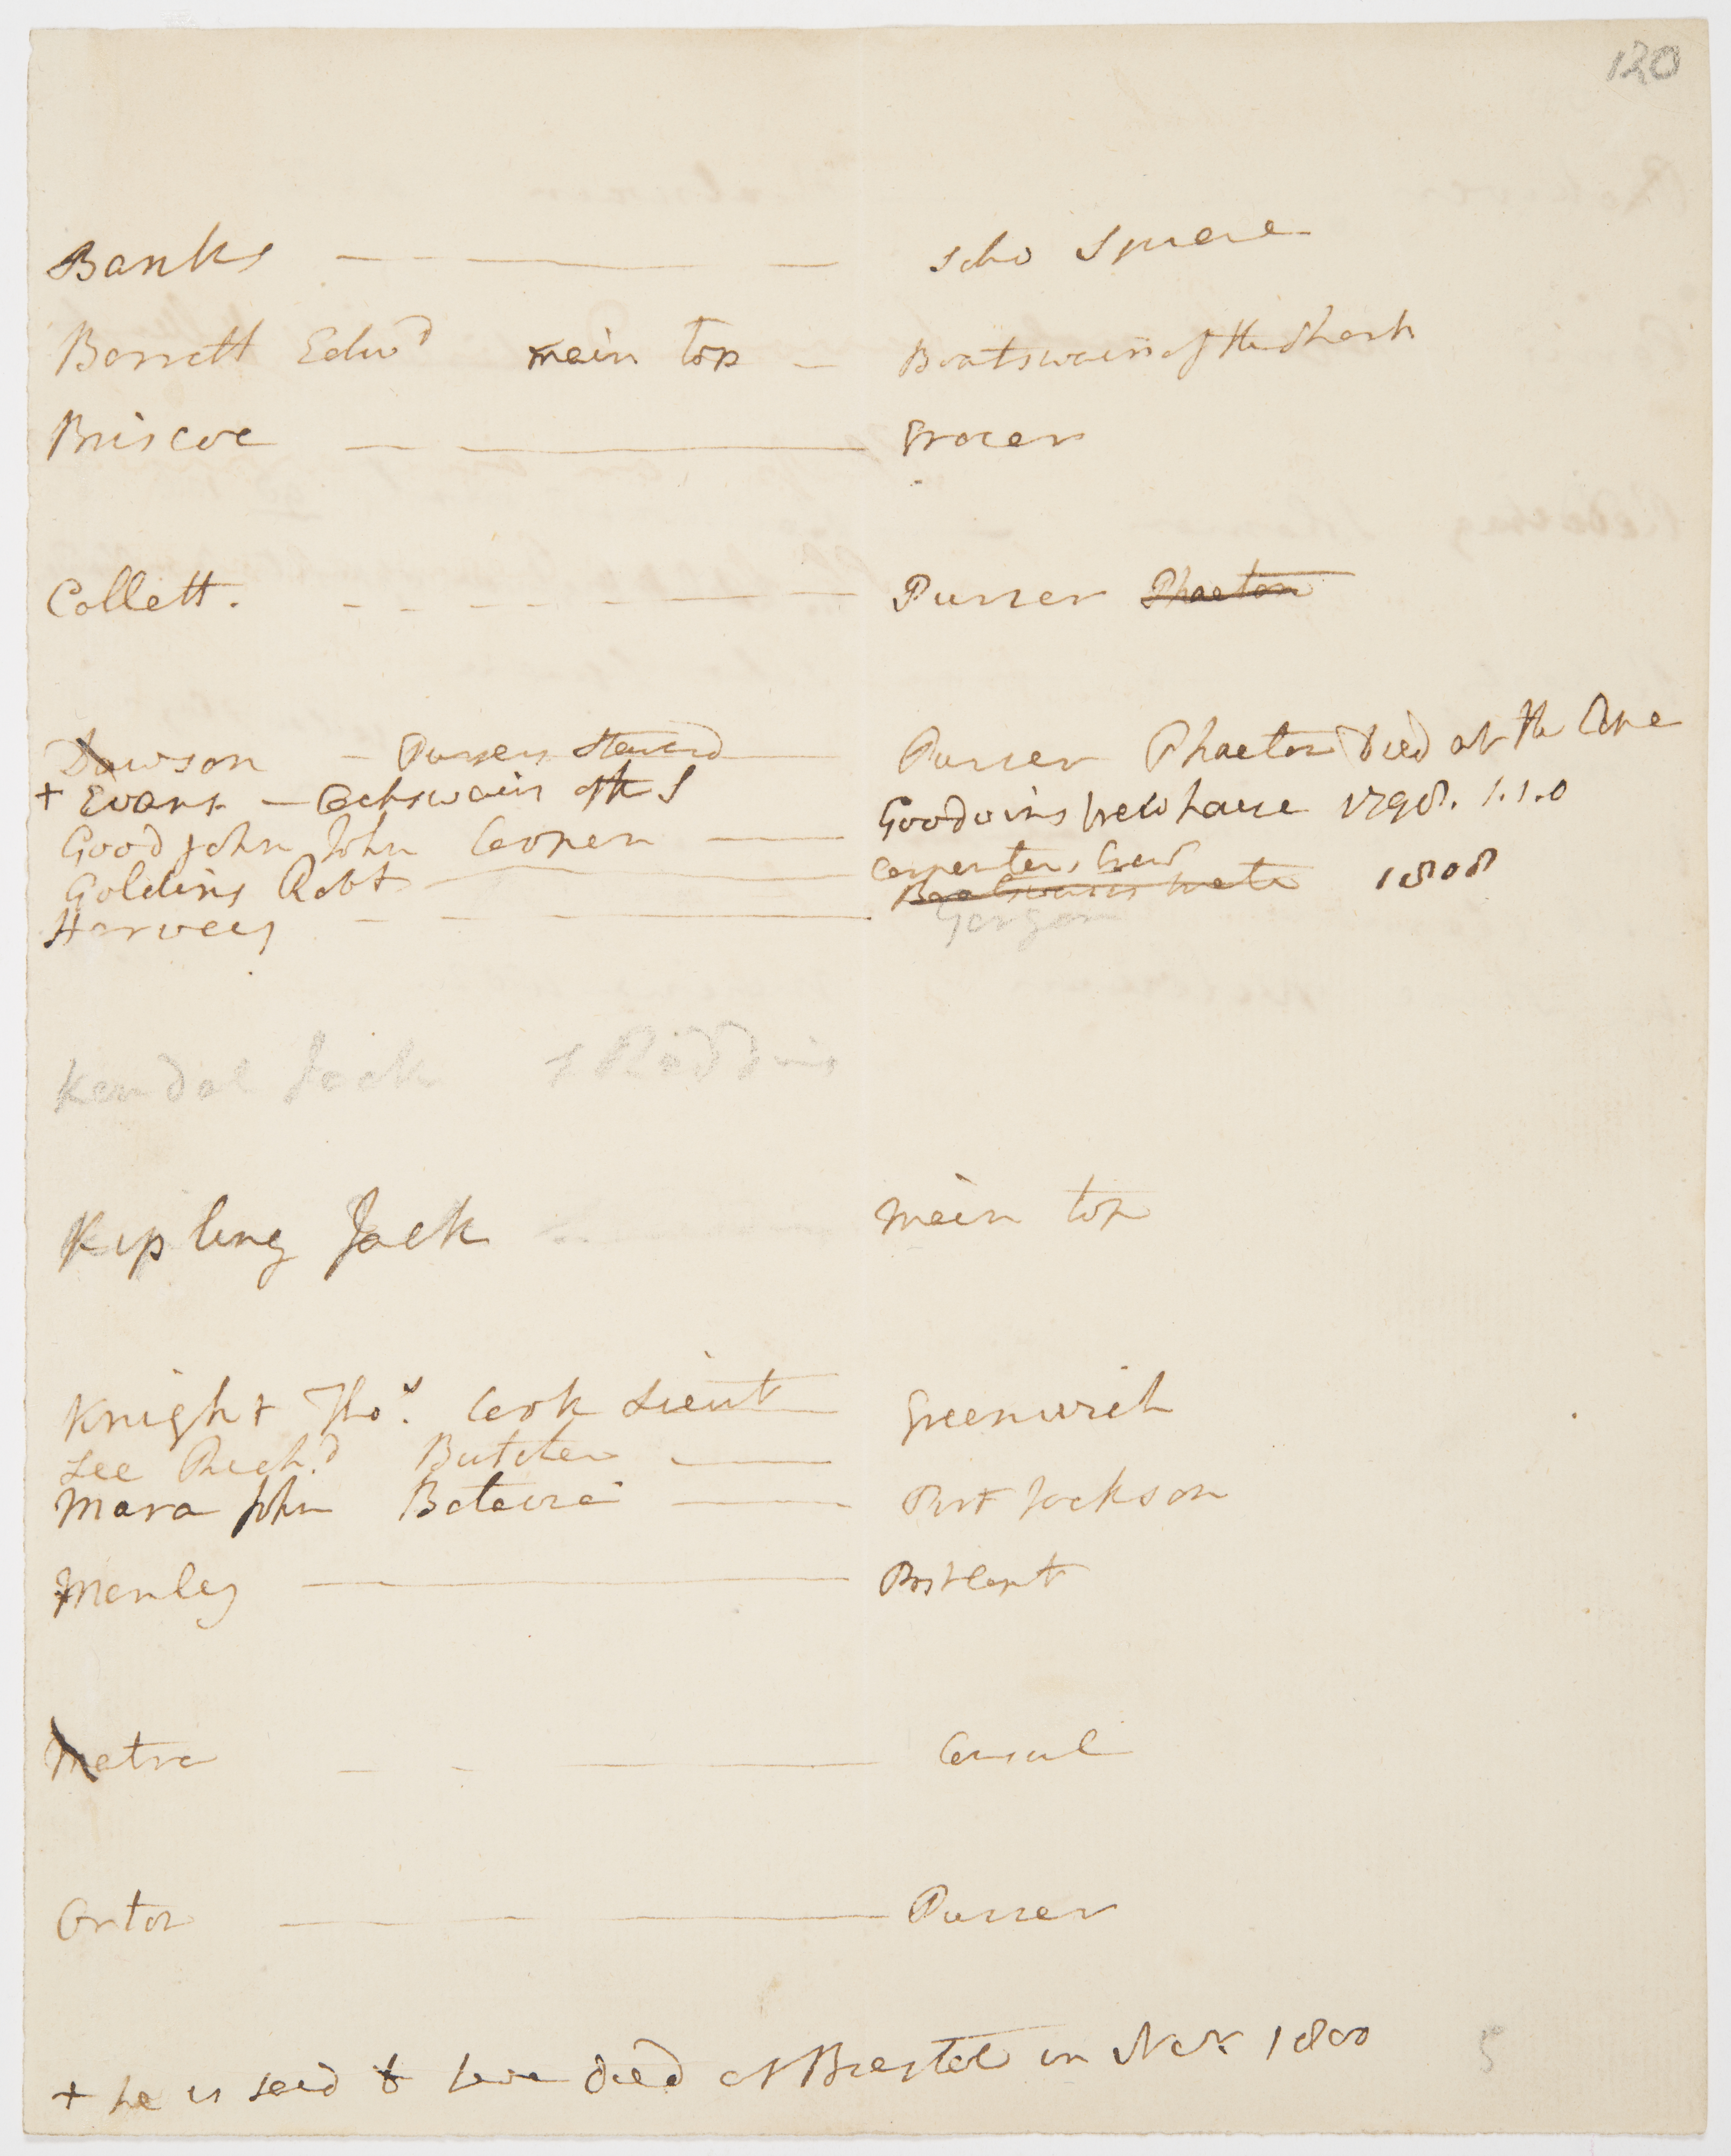 120
Banks — — — — Soho Square
Barrett Edwd main top — Boatswain of the Shark
Briscoe — — Grocer
Collett. - - - - - — — Purser Phaeton
Dawson — Pursers Steward — Purser Phaeton Died at the Cape
+ Evans — Cockswain of the S Goodwins New house 1798. 1.1.0
Good John John Cooper — Carpenters Crew
Golding Robt — Boatswains mate 1808
Harvey — — — — Gorgon
Kendal Jack
Kipling Jack main top
Knight Thos. Cook Lieut — Greenwich
Lee Richd. Butcher —
Mara John Batavia — Port Jackson
Manley — Post Capt
Matra — — — — Consul
Orton — — — — Purser
+ he is said to have died at Brestol in Nov. 1800
5